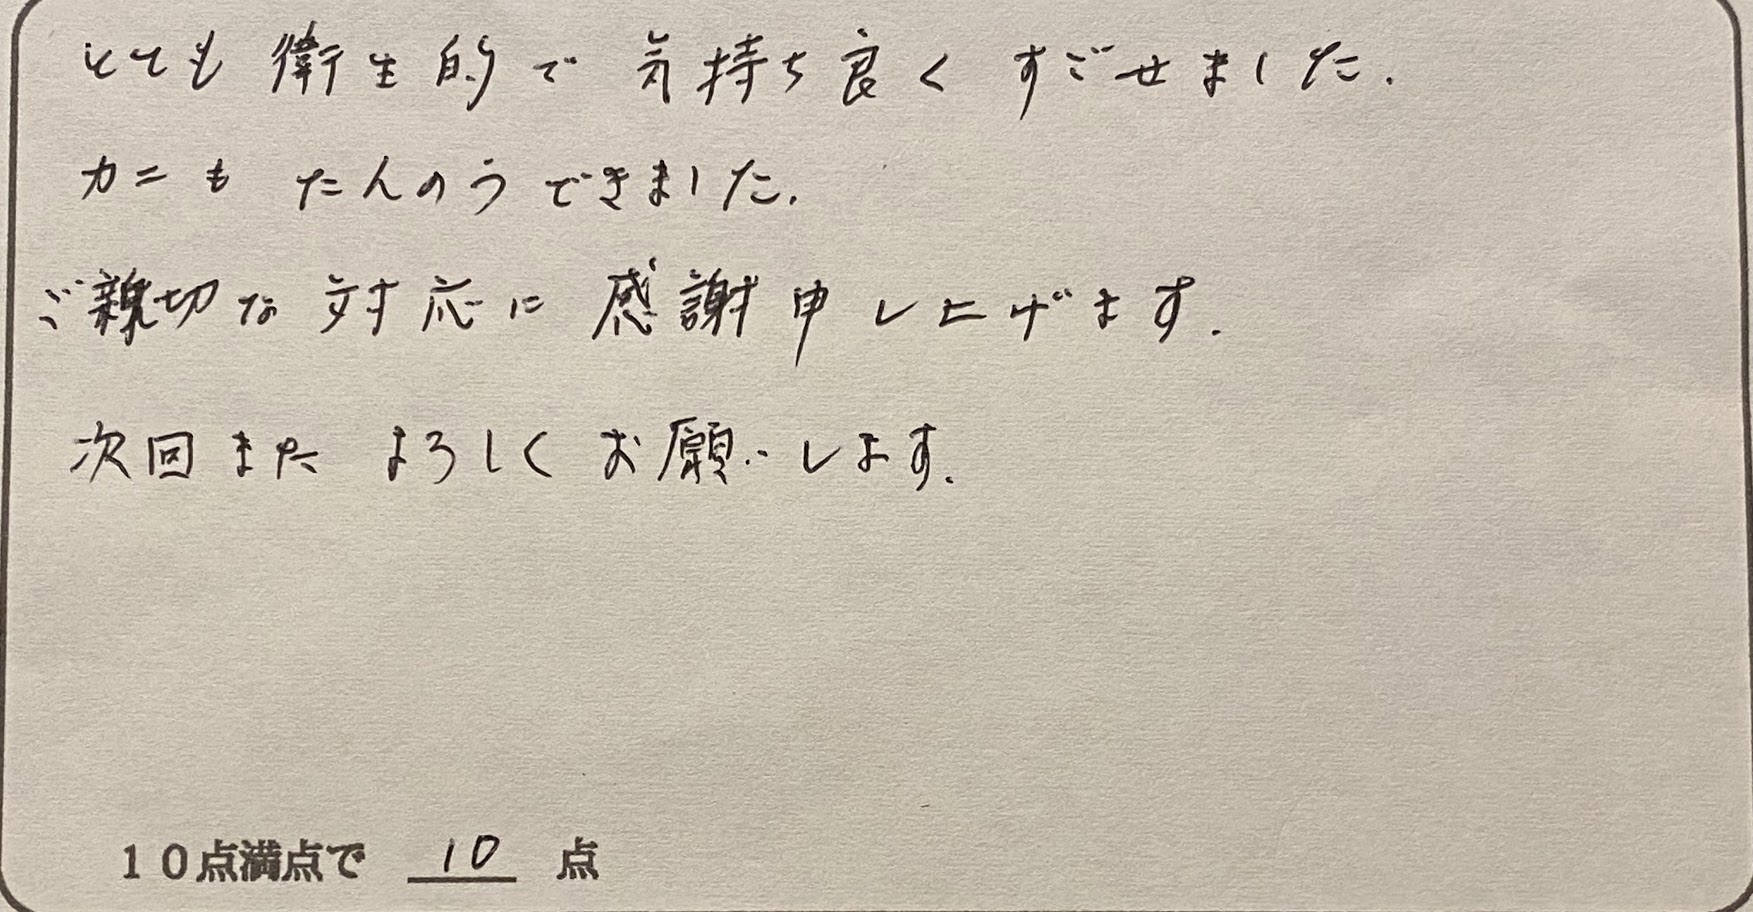 とても衛生的で気持ち良くすごせました.
カニもたんのうできました.
ご親切な対応に感謝申し上げます.
次回またよろしくお願いします.
10点満点で 10 点